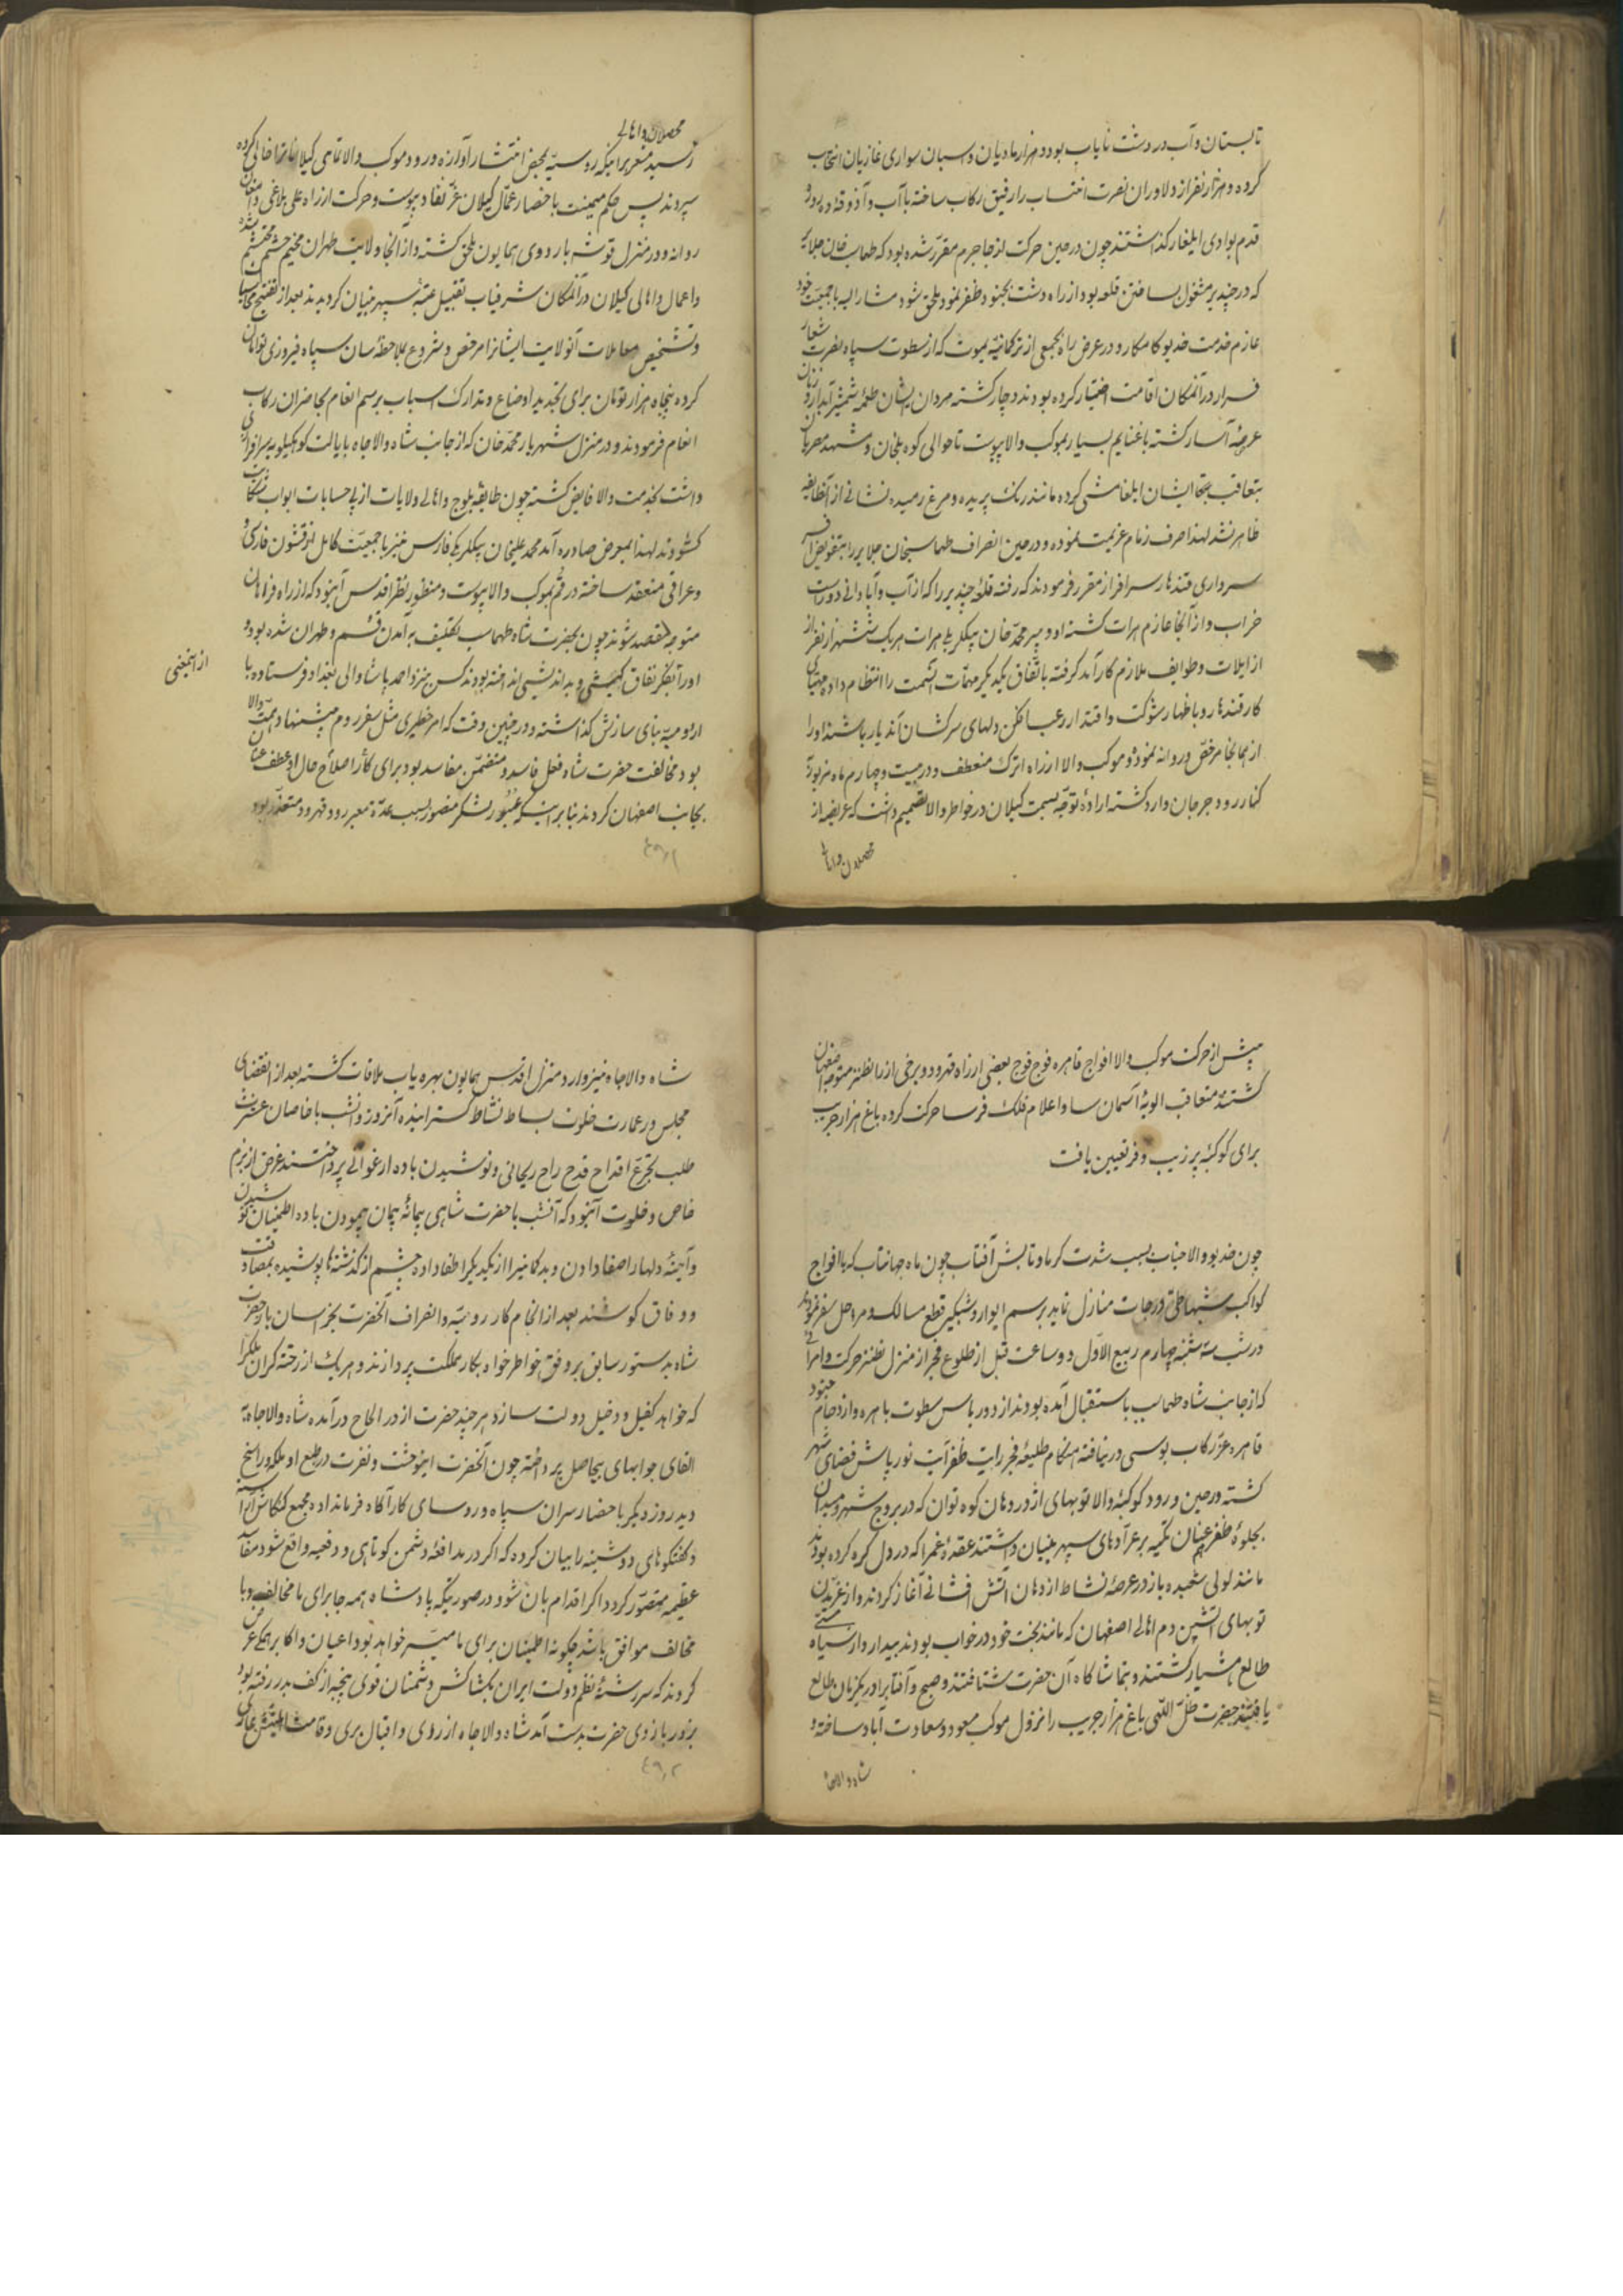 تابستان و آب در دشت نایاب بود دو هزار مادیان و اسبان سواری غازیان انتخاب
کرده و هزار نفر از دلاوران نصرت انتساب را رفیق رکاب ساخته با آب و آذوقه ده روزه
قدم بوادی ایلغار گذاشتند چون در حین حرکت از جاجرم مقرر شده بود که طهماسب خان جلایر
که در چیدیر مشغول بساختن قلعه بود از راه دشت بجنود ظفر نمود ملحق شود مشارالیه با جمعیت خود
عازم خدمت خدیو کامکار و در عرض راه بجمعی از ترکمانیه یموت که از سطوت سپاه نصرت شعار
فرار در آنمکان اقامت اختیار کرده بودند دچار گشته مردان ایشان طعمه شمشیر آبدار و زنان
عرضه اسار گشته با غنایم بسیار بموکب والا پیوست تا حوالی کوه بلخان و مشهد مصریان
بتعاقب ایشان ایلغامشی کرده مانند رنگ پریده و مرغ رمیده نشانی از آنطایفه
ظاهر نشد لهذا صرف زمام عزیمت نموده و در حین انصراف طهماسبخان جلایر را بتفویض افسر
سرداری قندهار سرافراز مقرر فرمودند که رفته قلعه چیدیر را که از آب و آبادانی دور است
خراب و از آنجا عازم هرات گشته او و پیر محمد خان بیگلربیگی هرات هر یک شش هزار نفر از
از ایلات و طوایف ملازم کارآمد گرفته باتفاق یکدیگر مهمات آنسمت را انتظام داده مهیای
کار قندهار و باظهار شوکت و اقتدار رعب افکن دلهای سرکشان آندیار باشند او را
از همانجا مرخص و روانه نموده و موکب والا از راه اترک منعطف و در بیست و چهارم ماه مزبور
کنار رود جرجان وارد گشته اراده توجه بسمت گیلان در خاطر والا تصمیم داشت که عریضه از
محصلان و اهالی
محصلان و اهالی
رسید مشعر بر اینکه روسیه بمحض انتشار آوازه ورود موکب والا تمامی گیلانات را خالی کرده
سپردند پس حکم میمنت باحضار عمال گیلان عز نفاذ پیوست و حرکت از راه علی بلاغی دامغان
روانه و در منزل قوشه باردوی همایون ملحق گشته و از آنجا ولایت طهران مخیم حشم محتشم شد
و اعمال و اهالی گیلان در آنمکان شرفیاب تقبیل عتبه سپهر بنیان گردیدند بعد از تنقیح محاسبات
و تشخیص معاملات آنولایت ایشانرا مرخص و شروع بملاحظه سان سپاه فیروزی توامان
کرده پنجاه هزار تومان برای تجدید اوضاع و تدارک اسباب برسم انعام بحاضران رکاب
انعام فرمودند و در منزل شهریار محمد خان که از جانب شاه والاجاه بایالت کوهکیلویه سرافرازی
داشت بخدمت والا فایض گشته چون طایفه بلوچ و اهالی ولایات از بی حسابات ابواب شکایت
گشودند لهذا بمعرض صادره آمد محمد علیخان بیگلربیگی فارس نیز با جمعیت کامل از قشون فارس و
و عراقی منعقد ساخته در قم بموکب والا پیوست و منظور نظر اقدس آن بود که از راه فراهان
متوجه مقصد شوند چون بحضرت شاه طهماسب تکلیف به آمدن قم و طهران شده بود و
او را بفکر نفاق کیشی و بداندیشی انداخته بودند کس نزد احمد پاشا والی بغداد فرستاده با
از آنمعنی
ارومیه بنای سازش گذاشته و در چنین وقت که امر خطیری مثل سفر روم پیشنهاد همت والا
بود مخالفت حضرت شاه فعل فاسد و متضمن مفاسد بود برای کار اصلاح حال او عطف عنان
بجانب اصفهان کردند بنابر اینکه عبور لشکر منصور بسبب معبر رود قهرود متعذر بود
۴۹٫۱
پیش از حرکت موکب والا افواج قاهره فوج فوج بعضی از راه قهرود و برخی از راه نطنز متوجه اصفهان
گشتند متعاقب الویه آسمان سا و اعلام فلک فرسا حرکت کرده باغ هزار جریب
برای کوکبه پر زیب و فر تعیین یافت
چون خدیو والا جناب بسبب شدت گرما و تابش آفتاب چون ماه جهانتاب که با افواج
کواکب شبها طی درجات منازل نماید برسم ایوار و شبگیر قطع مسالک و مراحل سفر نمودند
در شب سه شنبه چهارم ربیع الاول دو ساعت قبل از طلوع فجر از منزل نطنز حرکت و امرائی
که از جانب شاه طهماسب باستقبال آمده بودند از دورباس سطوت باهره و ازدحام جنود
قاهره عز رکاب بوسی در نیافته هنگام طلیعه فجر رایت ظفر آیت نور پاش فضای شهر
گشته در حین ورود کوکبه والا توبهای اژدر دهان کوه توان که در بروج شهر و میدان
بجلوه ظفر عنان تکیه بر عراده‌های سپهر بنیان داشتند عقده غم را که در دل گره کرده بودند
مانند لولی شعبده باز در عرصه نشاط از دهان آتش فشانی آغاز کردند و از غریدن
توبهای آتشین دم اهالی اصفهان که مانند بخت خود در خواب بودند بیدار و از سیاه مستی
طالع هشیار گشتند و بتماشاگاه آن حضرت شتافتند و صبح و آفتاب را در یکزمان طالع
یافتند حضرت ظل اللهی باغ هزار جریب را نزول موکب مسعود و سعادت آباد ساخته و
شاه والاجاه
شاه والاجاه نیز وارد منزل اقدس همایون بهره یاب ملاقات گشته بعد از انقضای
مجلس در عمارت خلوت بساط نشاط گسترانیده آنروز و آنشب با خاصان عشرت
طلب بتجرع اقداح قدح راح ریحانی و نوشیدن باده ارغوانی پرداختند غرض از بزم
خاص و خلوت آن بود که آنشب با حضرت شاهی پیمانه پیمان پیمودن باده اطمینان نوشیدن
و آینه دلها را صفا دادن و بدگمانی را از یکدیگر اطفا داده چشم از گذشته‌ها پوشیده بمصادقت
و وفاق کوشند بعد از انجام کار رومیه و انصراف آنحضرت بخراسان باز حضرت
شاه بدستور سابق بر وفق خاطرخواه بکار مملکت پردازند و هر یک از رخنه گران ملک را
که خواهد کفیل و دخیل دولت سازد هر چند حضرت از در الحاح درآمده شاه والاجاه به
القای جوابهای بیحاصل پرداخته چون آنحضرت اینوحشت و نفرت در طبع او ملکه و راسخ
دید روز دیگر باحضار سران سپاه و روسای کارآگاه فرمان داده مجمع کنکاش آراسته
و گفتگوهای دوشینه را بیان کرده که اگر در مدافعه دشمن کوتاهی و وقعه واقع شود مفاسد
عظیمه متصور گردد و اگر اقدام بآن شود در صورتیکه پادشاه همه جا برای ما مخالف و با
مخالف موافق باشد چگونه اطمینان برای ما میسر خواهد بود اعیان و اکابر همگی عرض
کردند که سررشته نظم دولت ایران بکشاکش دشمنان قوی پنجه از کف بدر رفته بود
بزور بازوی حضرت بدست آمد شاه والاجاه از روی و اقبال بری و قامت
۴۹٫۲